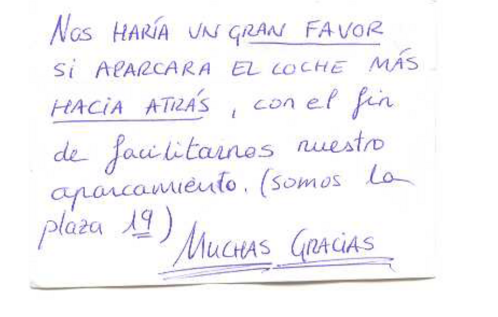 Nos HARÍA UN GRAN FAVOR
SI APARCARA EL COCHE MÁS
HACIA ATRÁS, con el fin
de facilitarnos nuestro
aparcamiento. (somos la
plaza 19)
MUCHAS GRACIAS